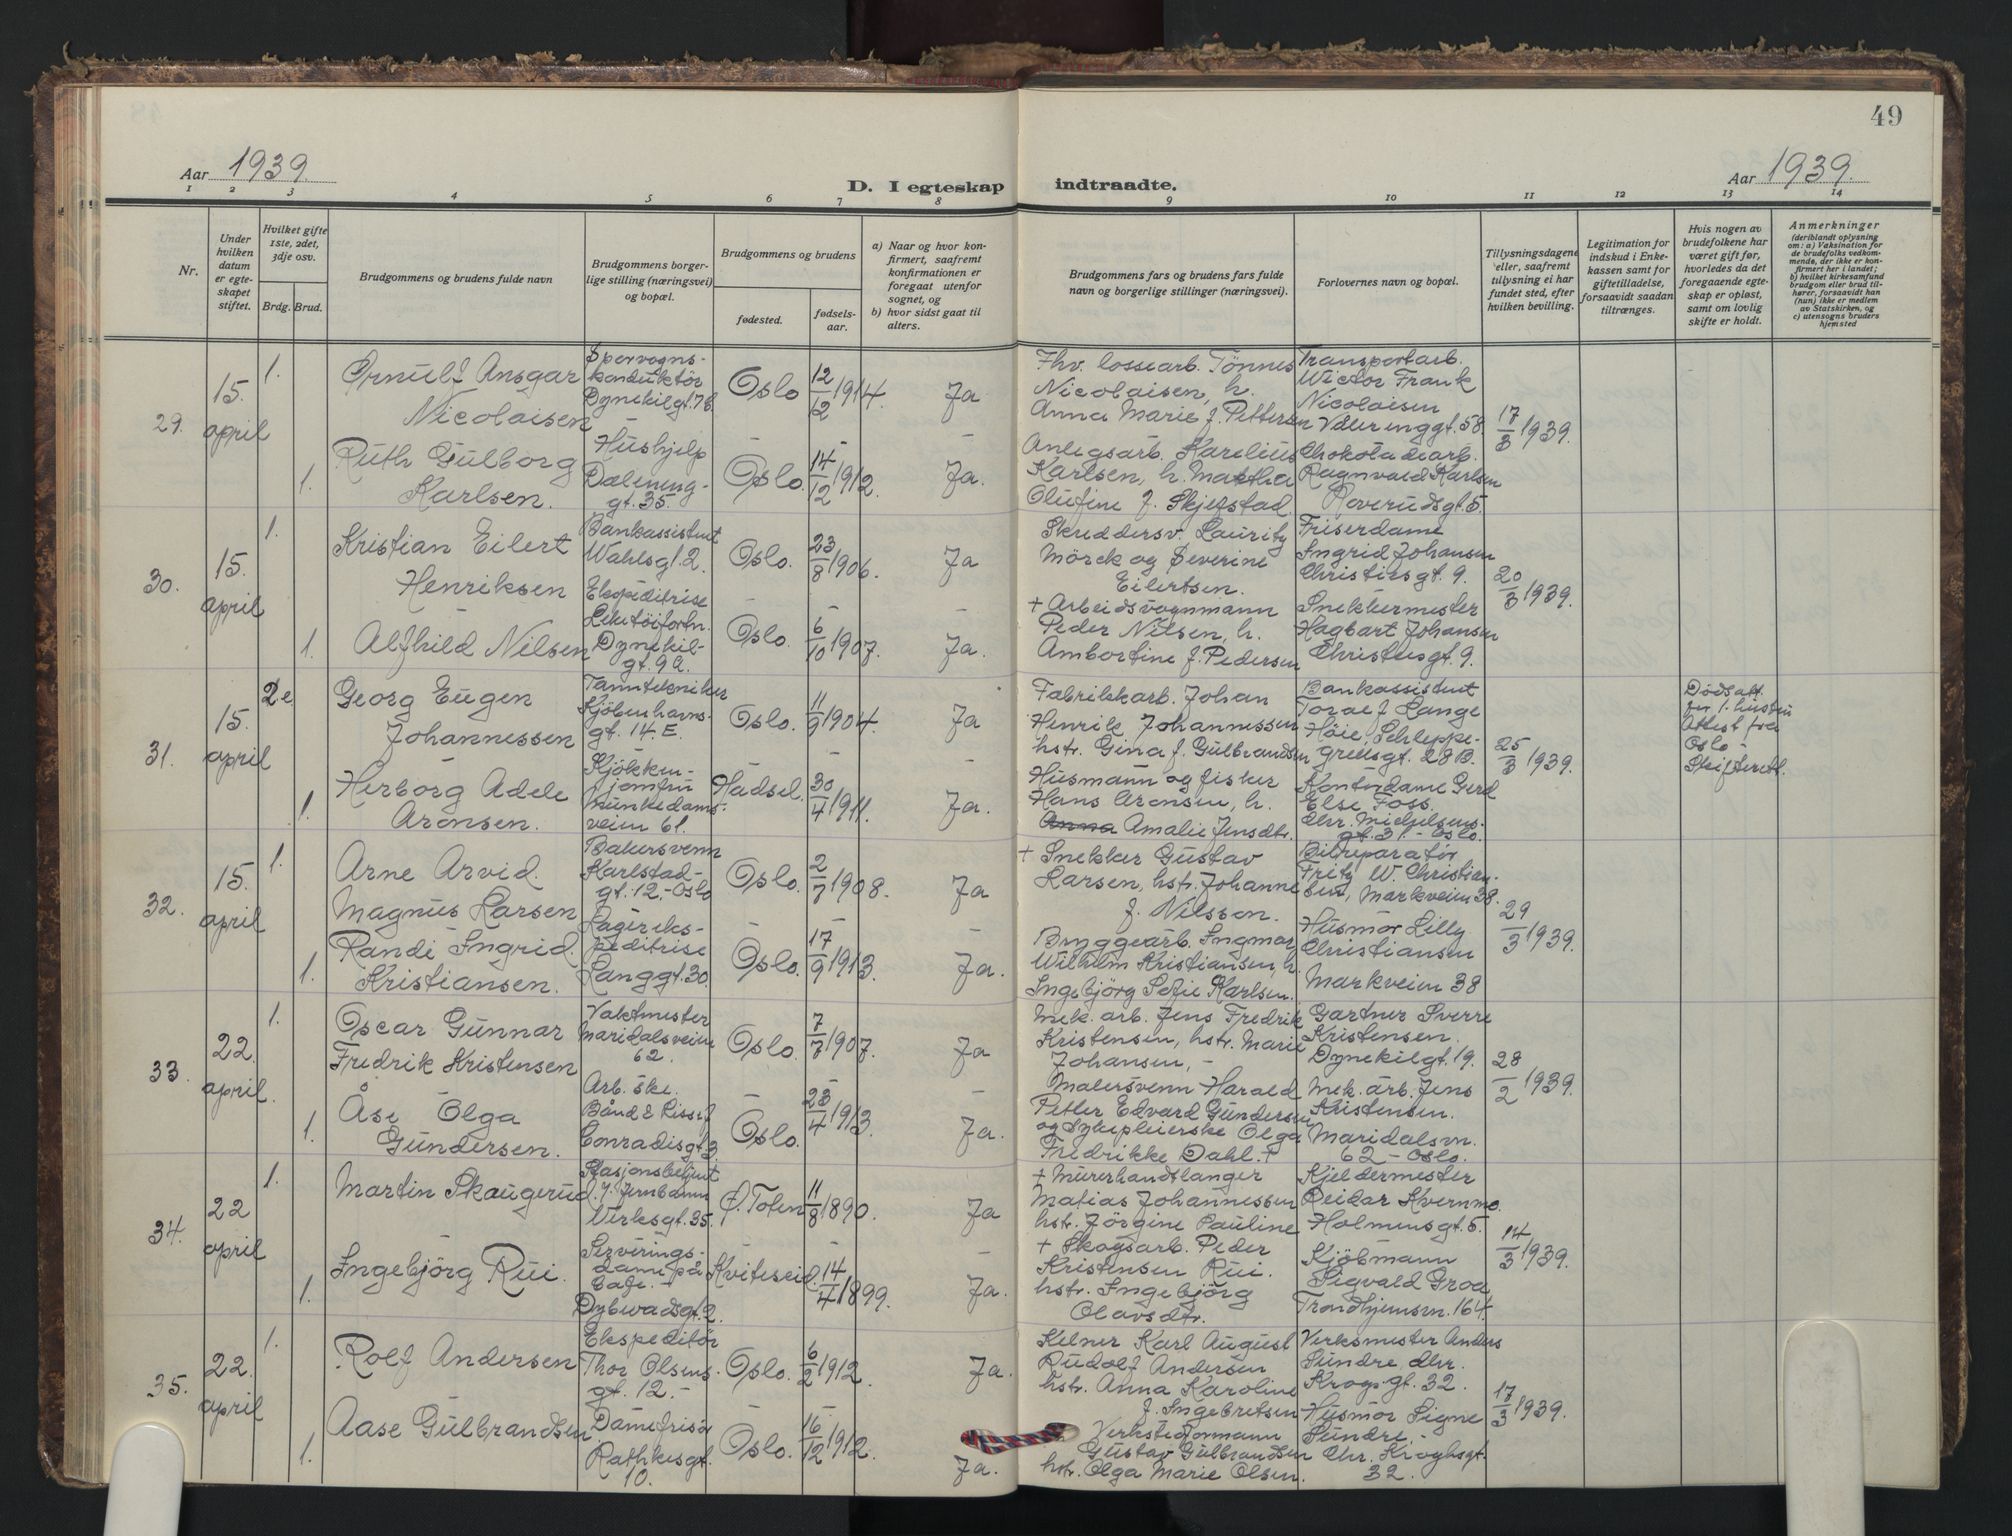 49
Aar 1939
D. I egteskap indtraadte.
Aar 1939.
1 2 3 4 5 6 7 8 9 10 11 12 13 14
Nr.
Under hvilken datum er egteskapet stiftet.
Hvilket gifte 1ste, 2det, 3dje osv.
Brdg. Brud.
Brudgommens og brudens fulde navn
Brudgommens borgerlige stilling (næringsvei) og bopæl.
Brudgommens og brudens
fødested.
fødselsaar.
a) Naar og hvor konfirmert, saafremt konfirmationen er foregaat utenfor sognet, og
b) hvor sidst gaat til alters.
Brudgommens fars og brudens fars fulde navn og borgerlige stillinger (næringsvei).
Forlovernes navn og bopæl.
Tillysningsdagene eller, saafremt tillysning ei har fundet sted, efter hvilken bevilling.
Legitimation for indskud i Enkekassen samt for giftetilladelse, forsaavidt saadan tiltrænges.
Hvis nogen av brudefolkene har været gift før, hvorledes da det foregaaende egteskap er opløst, samt om lovlig skifte er holdt.
Anmerkninger
(deriblandt oplysning om: a) Vaksination for de brudefolks vedkommende, der ikke er konfirmert her i landet;
b) hvilket kirkesamfund brudgom eller brud tilhører, forsaavidt han (hun) ikke er medlem av Statskirken, og
c) utensogns bruders hjemsted
29. 15. april
1. Ørnulf Ansgar Nicolaisen
Sporvogns-
konduktør
Dynekilgt. 7b.
Oslo 12/12 1914. Ja
Fhv. lossearb. Tönnes
Nicolaisen, h.
Anna Marie f. Pettersen
Transportarb.
Wictor Frank
Nicolaisen
Vålerenggt. 58.
17/3 1939.
1. Ruth Gulborg Karlsen.
Hushjelp
Dælening-
gt. 35.
Oslo. 14/12 1912. Ja.
Anlegsarb. Karelius
Karlsen, h. Martha
Olufine f. Skjefstad.
Chokoladearb.
Ragnvald Karlsen
Roverudsgt. 5.
30. 15. april
1. Kristian Eilert Henriksen
Bankassistent
Wahlsgt. 2.
Oslo. 23/8 1906. Ja
Skreddersv. Lauritz
Mörck og Severine
Eilertsen.
Friserdame
Ingrid Johansen
Christiesgt. 9.
20/3 1939.
1. Alfhild Nilsen
Ekspeditrise
Leketöiforrtn.
Dynekil-
gt. 9a.
Oslo. 6/10 1907. Ja.
+ Arbeidsvognmann
Peder Nilsen, h.
Ambortine f. Pedersen
Snekkermester
Hagbart Johansen
Christiesgt. 9.
31. 15. april
2e Georg Eugen Johannessen
Tanntekniker
Kjöbenhavns-
gt. 14. E.
Oslo. 11/9 1904. Ja
Fabrikkarb. Johan
Henrik Johannessen
hstr. Gina f. Gulbrandsen
Bankassistent
Toralf Lange
Höie, Schleppe-
grellsgt. 28B.
25/3 1939.
Dödsatt.
for 1. hustru
Attest fra
Oslo -
Skifterett.
1. Herborg Adele Aronsen.
Kjökken-
jomfru
Munkedams-
veien 61.
Hadsel. 30/4 1911. Ja.
Husmann og fisker
Hans Aronsen, h.
Anna Amalie Jensdtr.
Kontordame Gerd
Else Foss.
Chr. Michelsens-
gt. 31 - Oslo.
32. 15. april
1. Arne Arvid Magnus Larsen
Bakersvenn
Karlstad-
gt. 12. - Oslo
Oslo. 2/7 1908. Ja
+ Snekker Gustav
Larsen, hstr. Johanne
f. Nilssen.
Bilreparatör
Fritz W. Christian-
sen, Markveien 38.
29/3 1939.
1. Randi Ingrid Kristiansen.
Lagereks-
peditrise
Langgt. 30
Oslo. 17/9 1913. Ja.
Bryggearb. Ingmar
Wilhelm Kristiansen, h.
Ingebjörg Sofie Karlsen.
Husmor Lilly
Christiansen
Markveien 38
33. 22. april.
1. Oscar Gunnar Fredrik Kristensen
Vaktmester
Maridalsveien
62.
Oslo. 7/7 1907. Ja
Mek. arb. Jens Fredrik
Kristensen, hstr. Marie
Johansen, -
Gartner Sverre
Kristensen.
Dynekilgt. 19.
28/2 1939.
1. Åse Olga Gundersen.
Arb. ske.
Bånd & Lisse f.
Conradisgt. 3.
Oslo. 23/4 1913. Ja.
Malersvenn Harald
Petter Edvard Gundersen
og Sykepleierske Olga
Fredrikke Dahl. +
Mek. arb. Jens
Kristensen.
Maridalsvn.
62 - Oslo.
34. 22 april
1. Martin Skaugerud.
Stasjonsbetjent
v. Jernbanen
Verksgt. 35.
Ö. Toten 11/8 1890. Ja
+ Murerhandtlanger
Matias Johannessen
hstr. Jörgine Pauline
Kjeldermester
Reidar Kvernmo.
Holmensgt. 5.
14/3 1939.
1. Ingebjörg Rui.
Serverings-
dame på
Cafe. -
Dybwadsgt. 2.
Kviteseid. 14/4 1899. Ja.
+ Skogsarb. Peder
Kristensen Rui.
hstr. Ingebjörg
Olavsdtr.
Kjöbmann
Sigvald Groa
Trondhjemsvn. 164.
35. 22. april
1. Rolf Andersen
Ekspeditör
Thor Olsens-
gt. 12. -
Oslo. 6/2 1912. Ja.
Kelner Karl August
Rudolf Andersen
hstr. Anna Karoline
f. Ingebretsen
Verksmester Anders
Sundre, Chr.
Krogsgt. 32.
17/3 1939.
1. Aase Gulbrandsen
Damefrisör
Rathkesgt.
10.
Oslo. 16/12 1912. Ja.
Verkstedformann
Gustav Gulbrandsen
hstr. Olga Marie Olsen.
Husmor Signe
Sundre, -
Chr. Kroghsgt.
32.